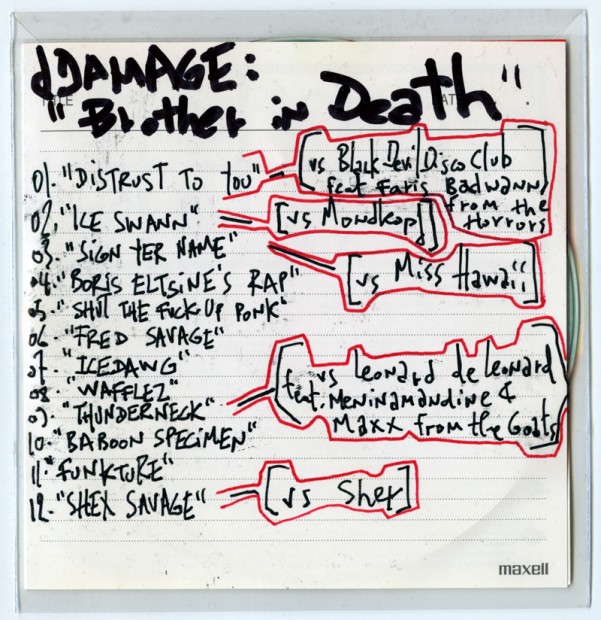 dDAMAGE:
"Brother in Death"
01. "DISTRUST TO YOU" [vs Black Devil Disco Club
feat Faris Badwann
from the
Horrors]
02. "ICE SWANN" [vs Mondkopf]
03. "SIGN YER NAME" [vs Miss Hawaii]
04. "BORIS ELTSINE'S RAP"
05. "SHUT THE FUCK UP PONK"
06. "FRED SAVAGE"
07. "ICEDAWG"
08. "WAFFLEZ"
09. "THUNDERNECK" [vs Leonard de Leonard
feat. Meninamandine &
Maxx from the Goats]
10. "BABOON SPECIMEN"
11. "FUNKTURE"
12. "SHEX SAVAGE" [vs Shex]
maxell